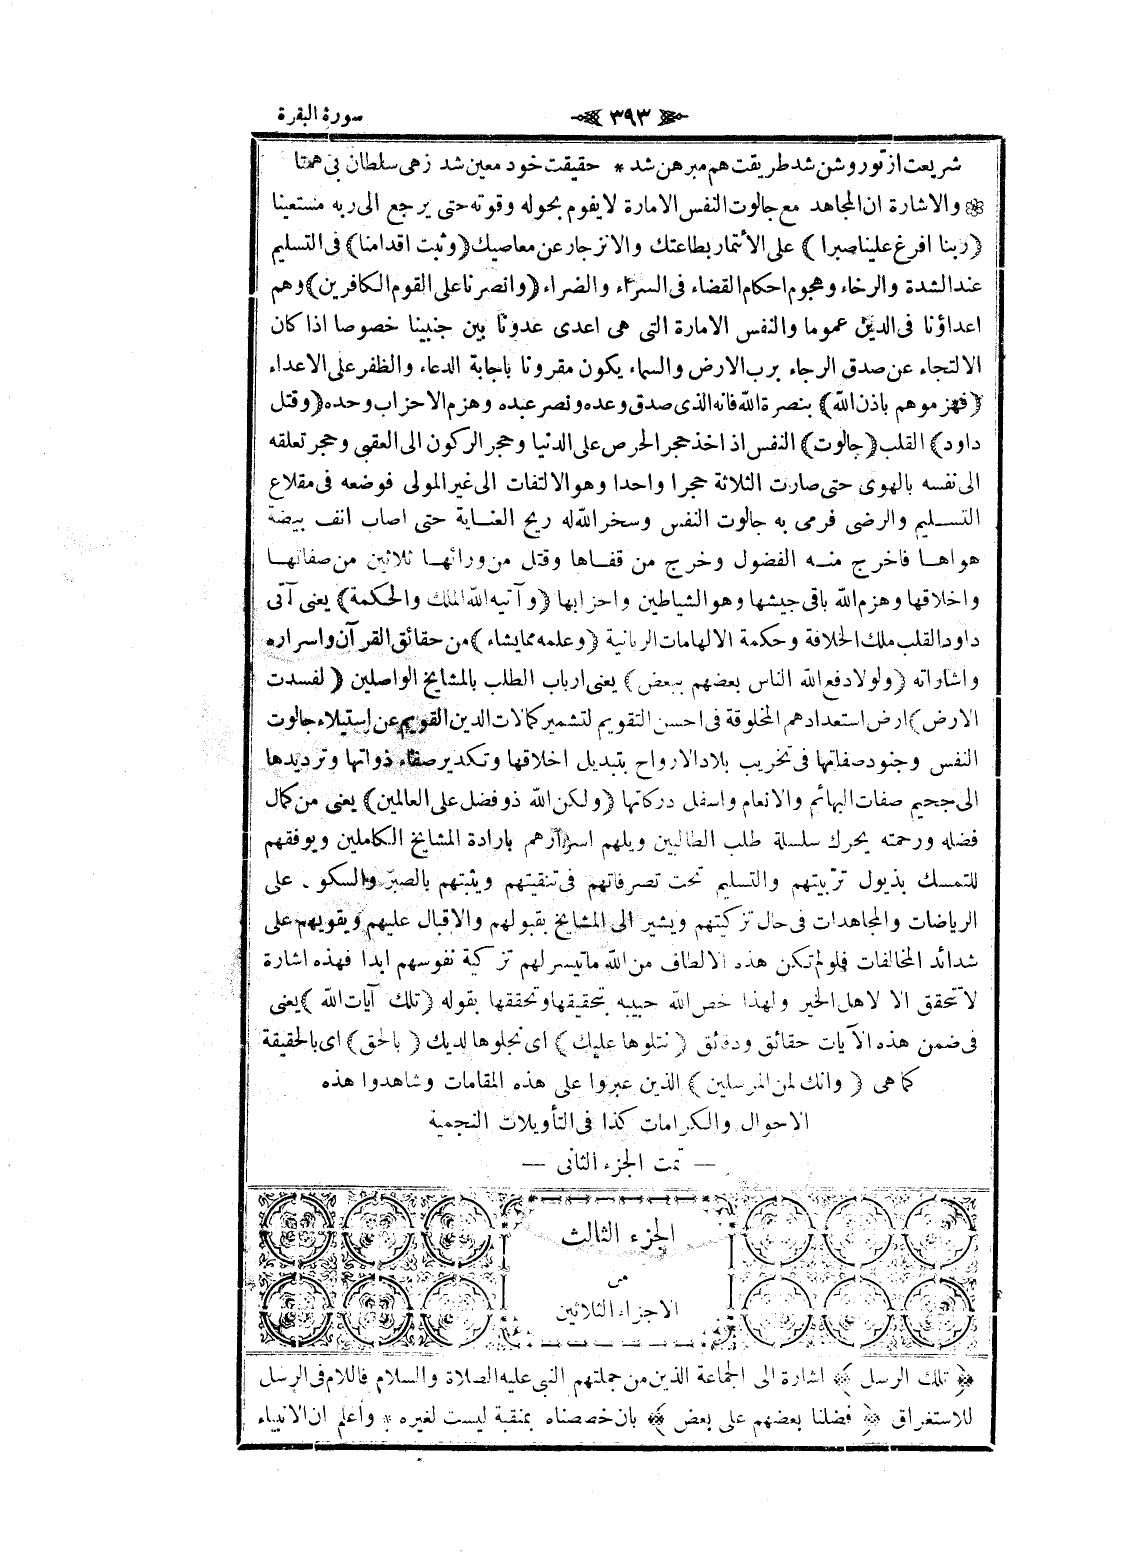 سورة البقرة
٣٩٣
شريعت از تو روشن شد طريقت هم مبرهن شد * حقيقت خود معين شد زهى سلطان بى همتا
والاشارة ان المجاهد مع جالوت النفس الامارة لايقوم بحوله وقوته حتى يرجع الى ربه مستعينا
(ربنا افرغ علينا صبرا) على الأتمار بطاعتك والانزجار عن معاصيك (وثبت اقدامنا) فى التسليم
عند الشدة والرخاء وهجوم احكام القضاء فى السراء والضراء (وانصرنا على القوم الكافرين) وهم
اعداؤنا فى الدين عموما والنفس الامارة التى هى اعدى عدونا بين جنبينا خصوصا اذا كان
الالتجاء عن صدق الرجاء برب الارض والسماء يكون مقرونا باجابة الدعاء والظفر على الاعداء
(فهزموهم باذن الله) بنصرة الله فانه الذى صدق وعده ونصر عبده وهزم الاحزاب وحده (وقتل
داود) القلب (جالوت) النفس اذ اخذ حجر الحرص على الدنيا وحجر الركون الى العقبى وحجر تعلقه
الى نفسه بالهوى حتى صارت الثلاثة حجرا واحدا وهو الالتفات الى غير المولى فوضعه فى مقلاع
التسليم والرضى فرمى به جالوت النفس وسخر الله له ريح العناية حتى اصاب انف بيضة
هواها فاخرج منه الفضول وخرج من قفاها وقتل من ورائها ثلاثين من صفاتها
واخلاقها وهزم الله باقى جيشها وهو الشياطين واحزابها (وآتيه الله الملك والحكمة) يعنى آتى
داود القلب ملك الخلافة وحكمة الالهامات الربانية (وعلمه مما يشاء) من حقائق القرآن واسراره
واشاراته (ولولا دفع الله الناس بعضهم ببعض) يعنى ارباب الطلب بالمشايخ الواصلين (لفسدت
الارض) ارض استعدادهم المخلوقة فى احسن التقويم لتشمير كمالات الدين القويم عن استيلاء جالوت
النفس وجنود صفاتها فى تخريب بلاد الارواح بتبديل اخلاقها وتكدير صفاء ذواتها وترديدها
الى جحيم صفات البهائم والانعام واسفل دركاتها (ولكن الله ذو فضل على العالمين) يعنى من كمال
فضله ورحمته يحرك سلسلة طلب الطالبين ويلهم اسرارهم بارادة المشايخ الكاملين ويوفقهم
للتمسك بذيول تربيتهم والتسليم تحت تصرفاتهم فى تنقيتهم ويثبتهم بالصبر والسكو . على
الرياضات والمجاهدات فى حال تزكيتهم ويشير الى المشايخ بقبولهم والاقبال عليهم ويقويهم على
شدائد المخالفات فلو لم تكن هذه الالطاف من الله ماتيسر لهم تزكية نفوسهم ابدا فهذه اشارة
لا تتحقق الا لاهل الخير ولهذا خص الله حبيبه بتحقيقها وتحققها بقوله (تلك آيات الله) يعنى
فى ضمن هذه الآيات حقائق ودقائق (نتلوها عليك) اى نجلوها لديك (بالحق) اى بالحقيقة
كما هى (وانك لمن المرسلين) الذين عبروا على هذه المقامات وشاهدوا هذه
الاحوال والكرامات كذا فى التأويلات النجمية
— تمت الجزء الثانى —
الجزء الثالث
من
الاجزاء الثلاثين
﴿ تلك الرسل ﴾ اشارة الى الجماعة الذين من جملتهم النبى عليه الصلاة والسلام فاللام فى الرسل
للاستغراق ﴿ فضلنا بعضهم على بعض ﴾ بان خصصناه بمنقبة ليست لغيره * واعلم ان الانبياء